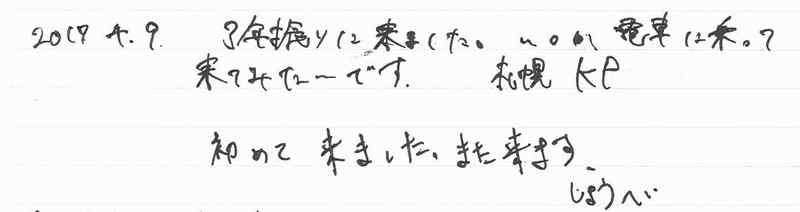 2017 4.9. 3年振りに来ました。いつか電車に乗って
来てみたいです。 札幌 KP
初めて来ました。また来ます。
じょうへい